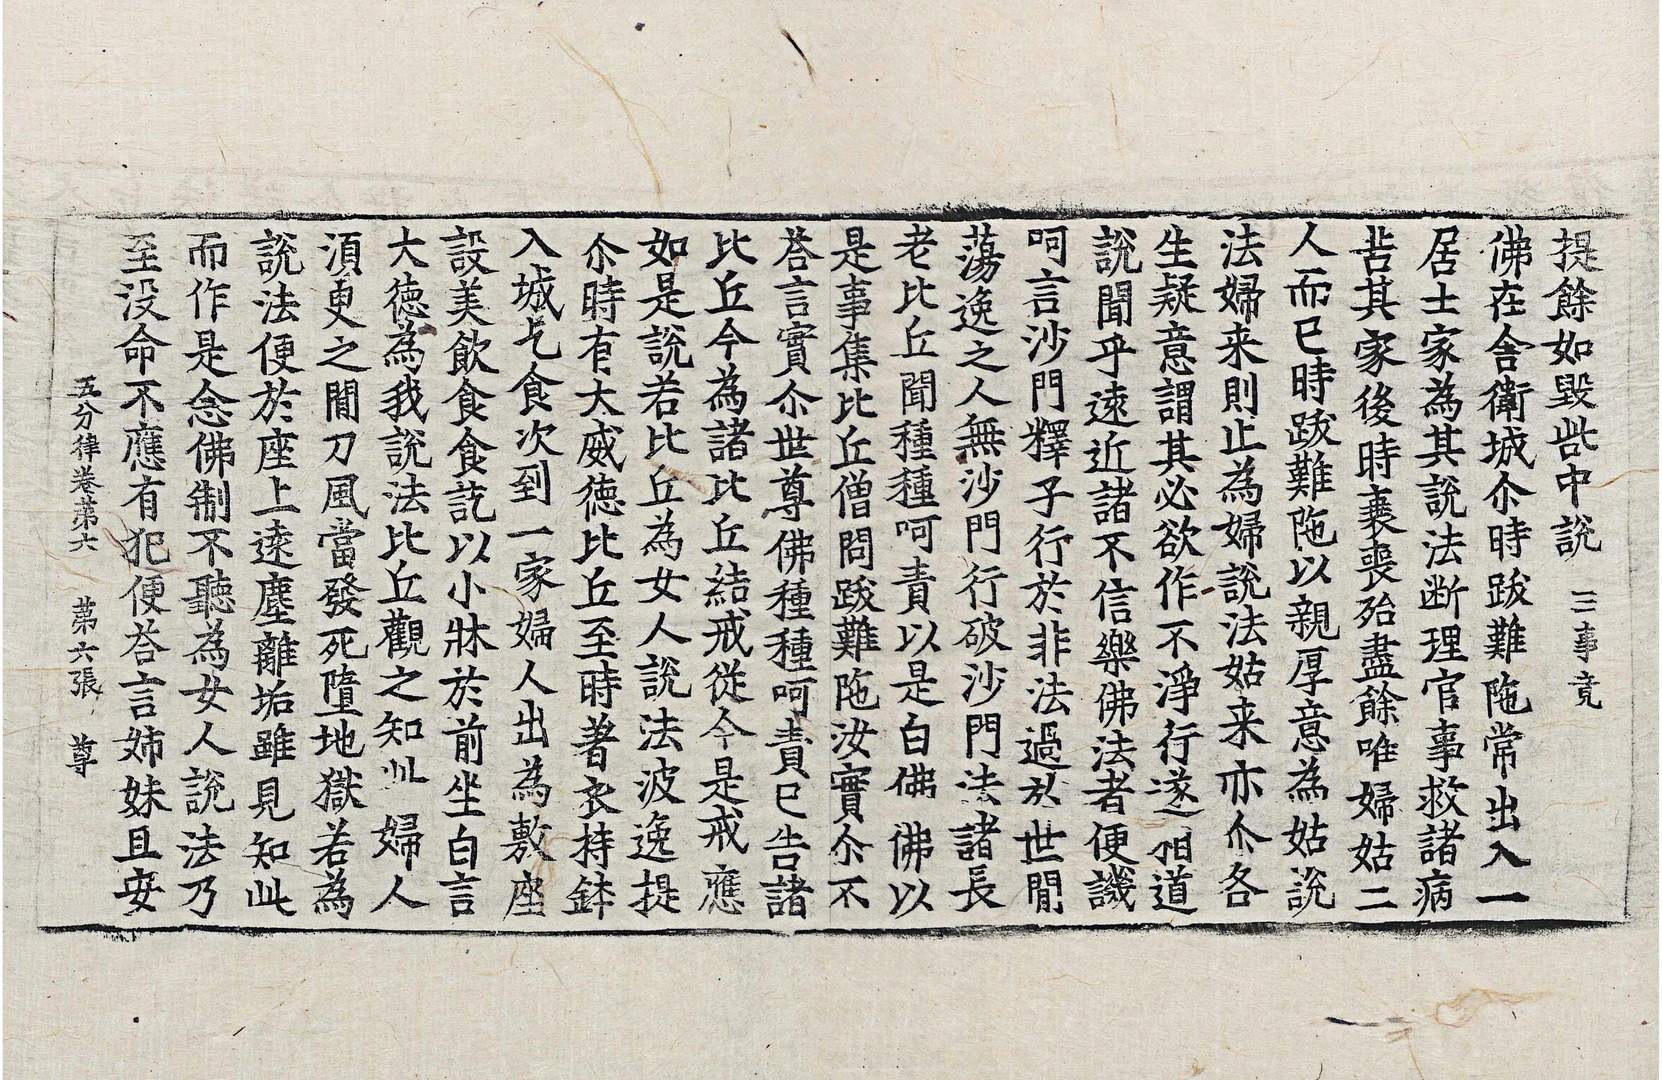 提餘如毀呰中說 三事竟
佛在舍衛城尒時跋難陁常出入一
居士家為其說法断理官事救諸病
苦其家後時衰喪殆盡餘唯婦姑二
人而已時跋難陁以親厚意為姑說
法婦来則止為婦說法姑来亦尒各
生疑意謂其必欲作不淨行遂相道
說聞乎遠近諸不信樂佛法者便譏
呵言沙門釋子行於非法過於世閒
蕩逸之人無沙門行破沙門法諸長
老比丘聞種種呵責以是白佛佛以
是事集比丘僧問跋難陁汝實尒不
荅言實尒世尊佛種種呵責已告諸
比丘今為諸比丘結戒從今是戒應
如是說若比丘為女人說法波逸提
尒時有大威德比丘至時著衣持鉢
入城乞食次到一家婦人出為敷座
設美飲食食訖以小牀於前坐白言
大德為我說法比丘觀之知此婦人
須臾之閒刀風當發死墮地獄若為
說法便於座上遠塵離垢雖見知此
而作是念佛制不聽為女人說法乃
至没命不應有犯便荅言姉妹且安
五分律卷苐六 苐六張 尊